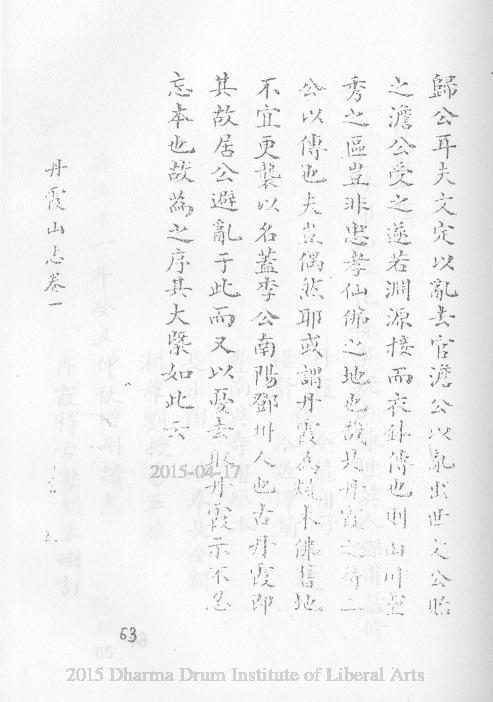 歸公耳夫文定以亂去官澹公以亂出世文公貽
之澹公受之遂若淵源接而衣鉢傳也則山川靈
秀之區豈非忠孝仙佛之地也哉是丹霞之待二
公以傳也夫豈偶然耶或謂丹霞為燒木佛舊地
不宜更襲以名蓋李公南陽鄧州人也古丹霞即
其故居公避亂于此而又以憂去取丹霞示不忘
忘本也故為之序其大槩如此云
丹霞山志卷一
63
2015-04-17
2015 Dharma Drum Institute of Liberal Arts